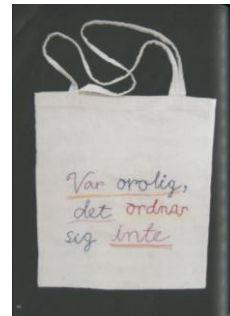 Var orolig,
det ordnar
sig inte